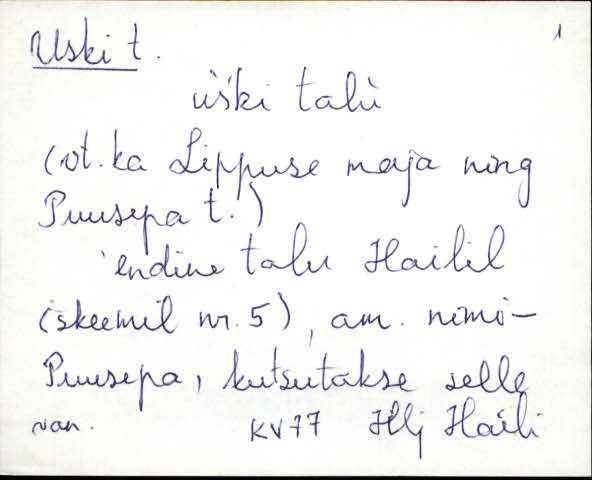 Uski t. 1
ùški talù
(vt. ka Lippuse maja ning
Puusepa t.)
endine talu Hailil
(skeemil nr. 5), am. nimi-
Puusepa, kutsutakse selle
van. KV77 Hlj Haili